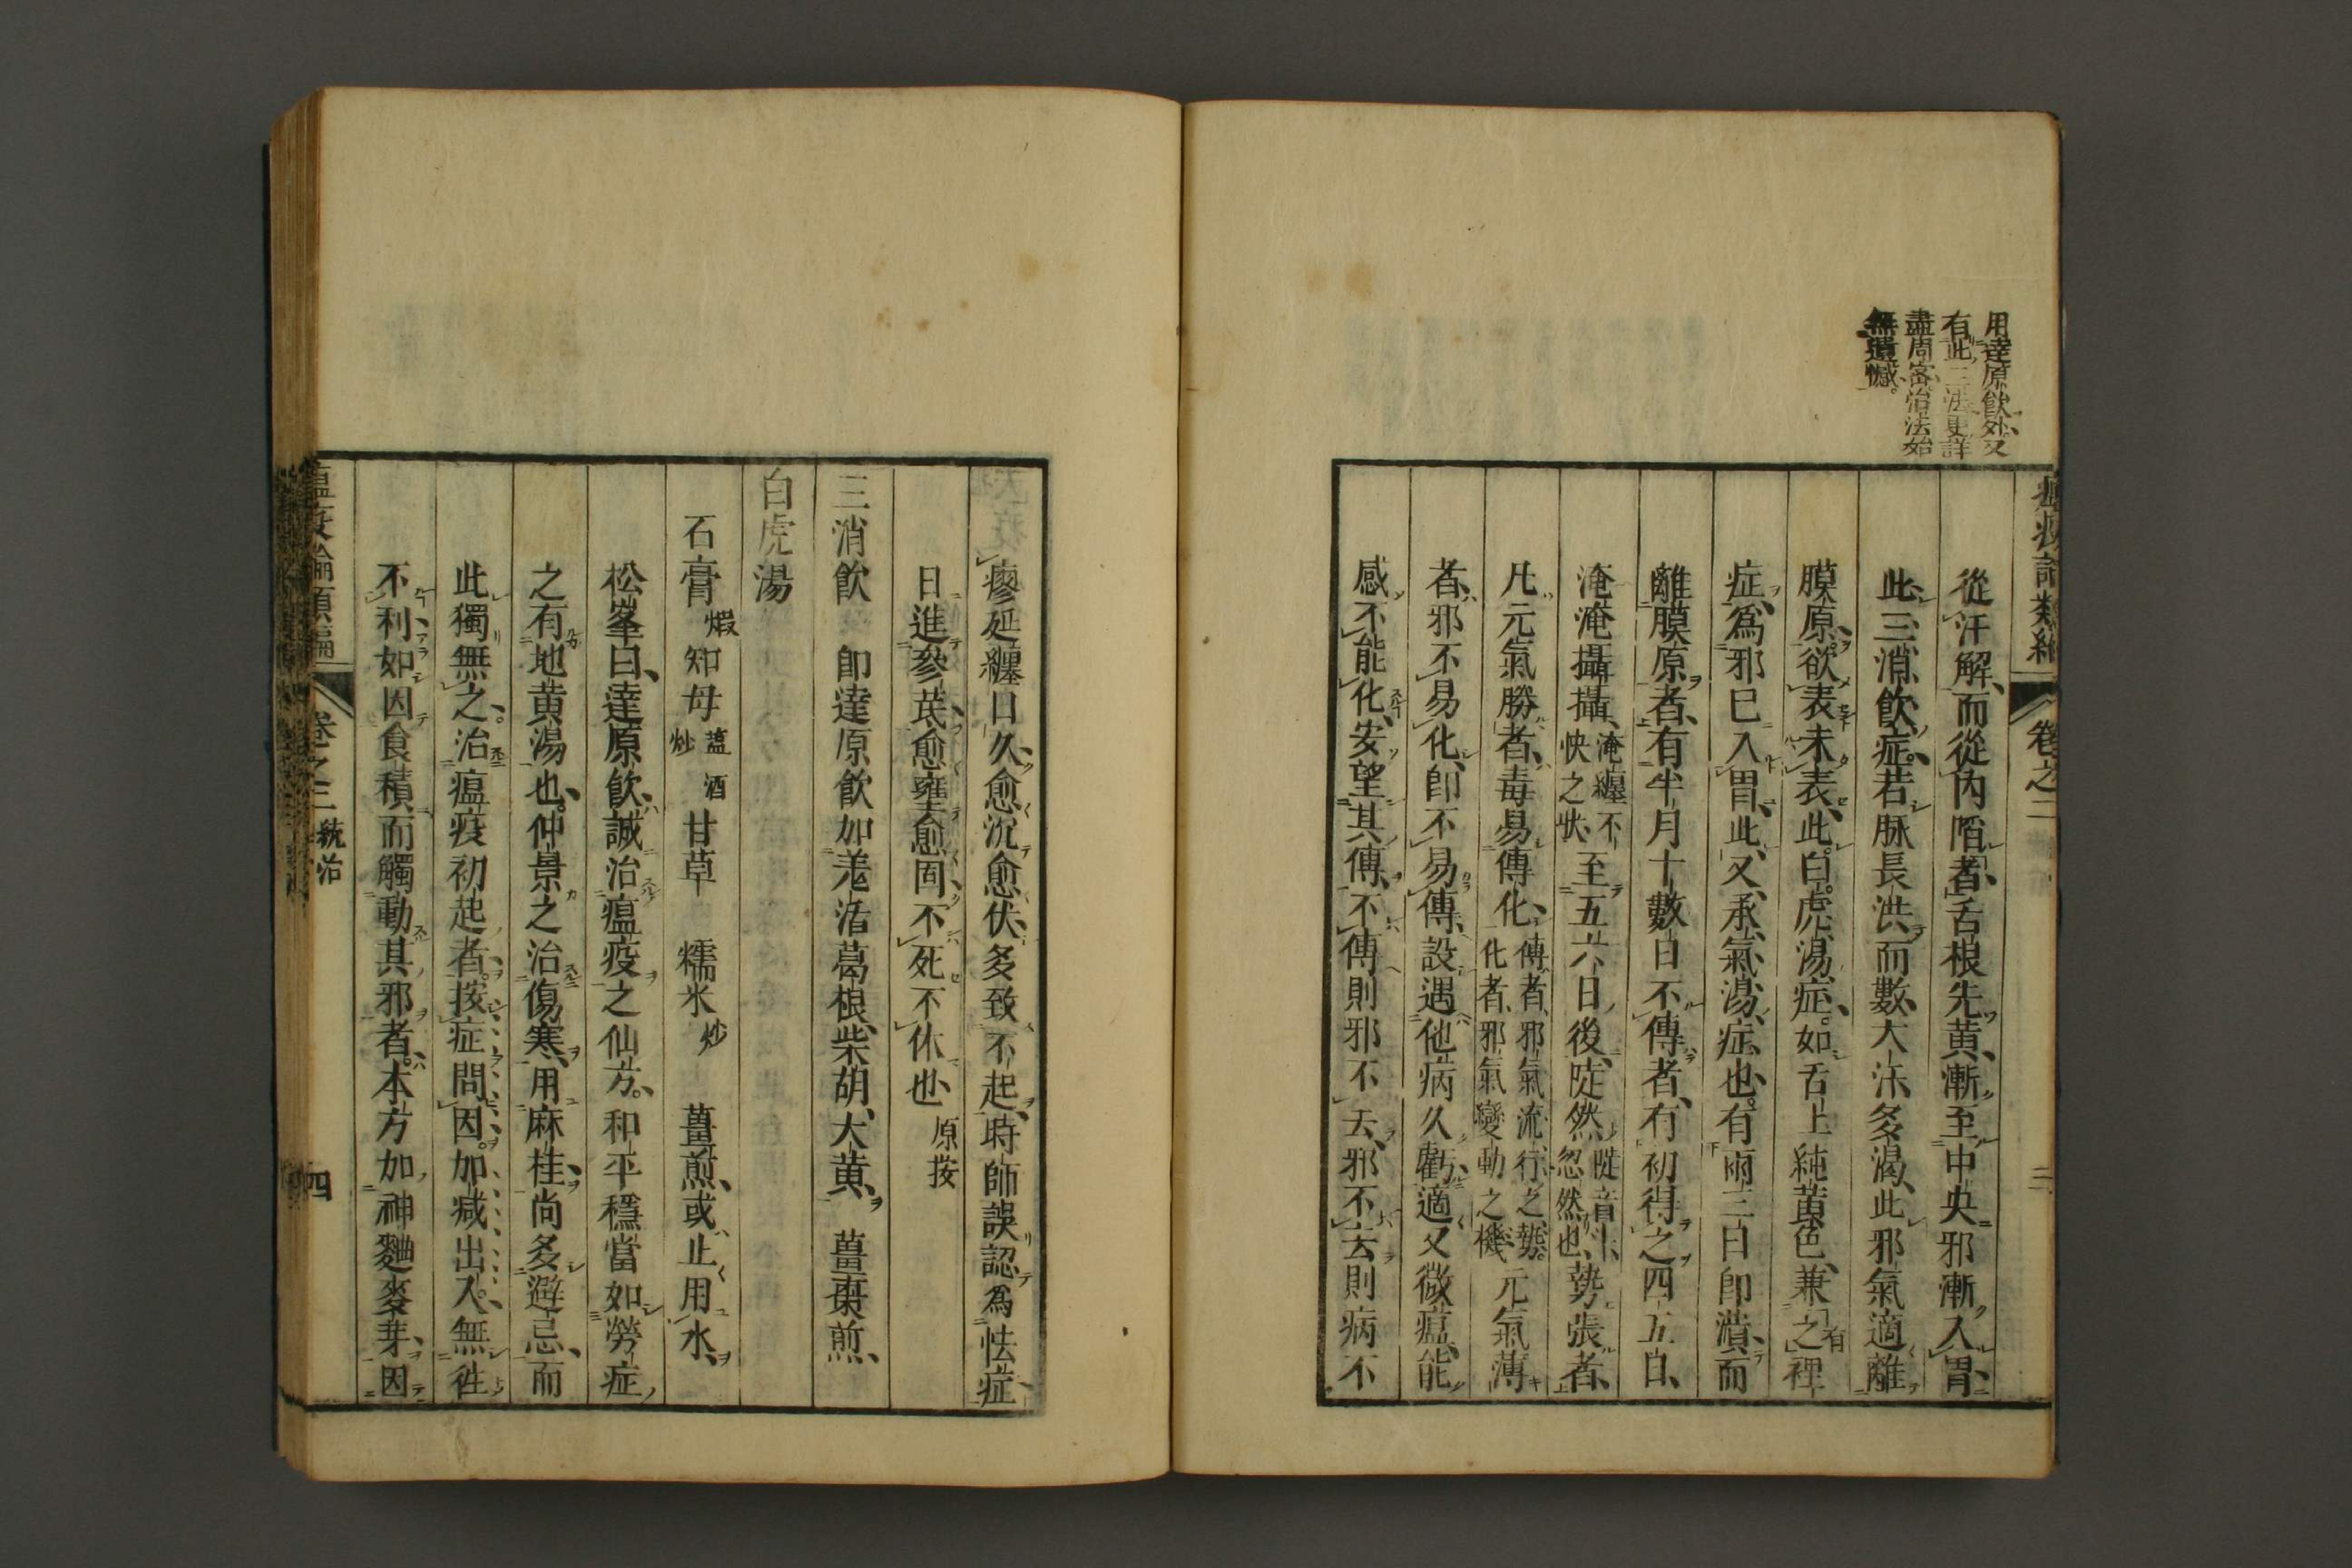 用達原飲外又
有此三法更詳
盡周密治法始
無遺憾。
卷之三
三
從汗解、而從內陷者、舌根先黃、漸至中央、邪漸入胃、
此三消飲症、若脉長洪而數、大汗多渴、此邪氣適離
膜原、欲表未表、此白虎湯症、如舌上純黃色、兼之有裡
症、爲邪已入胃、此又承氣湯症也、有兩三日即潰而
離膜原者、有半月十數日不傳者、有初得之四五日、
淹淹攝攝、淹纏不快之狀、至五六日後、陡然陡音斗、忽然也、勢張者、
凡元氣勝者、毒易傳化、傳者、邪氣流行之勢。化者、邪氣變動之機元氣薄
者、邪不易化、即不易傳、設遇他病久虧、適又微瘟、能
感不能化、安望其傳、不傳則邪不去、邪不去則病不
瘳延纏日久、愈沉愈伏、多致不起、時師誤認爲怯症
日進參芪、愈壅愈固、不死不休也、原按
三消飲　即達原飲加羌活葛根、柴胡、大黄、薑棗煎、
白虎湯
石膏煅　知母鹽酒炒　甘草　糯米炒　薑煎、或止用水、
松峯曰、達原飲、誠治瘟疫之仙方。和平穩當、如勞症
之有地黄湯也、仲景之治傷寒、用麻桂、尚多避忌、而
此獨無之。治瘟疫初起者、按症問因。加减出入、無徃
不利、如因食積而觸動其邪者。本方加神麯麥芽、因
瘟疫論類編
卷之三　統治
四